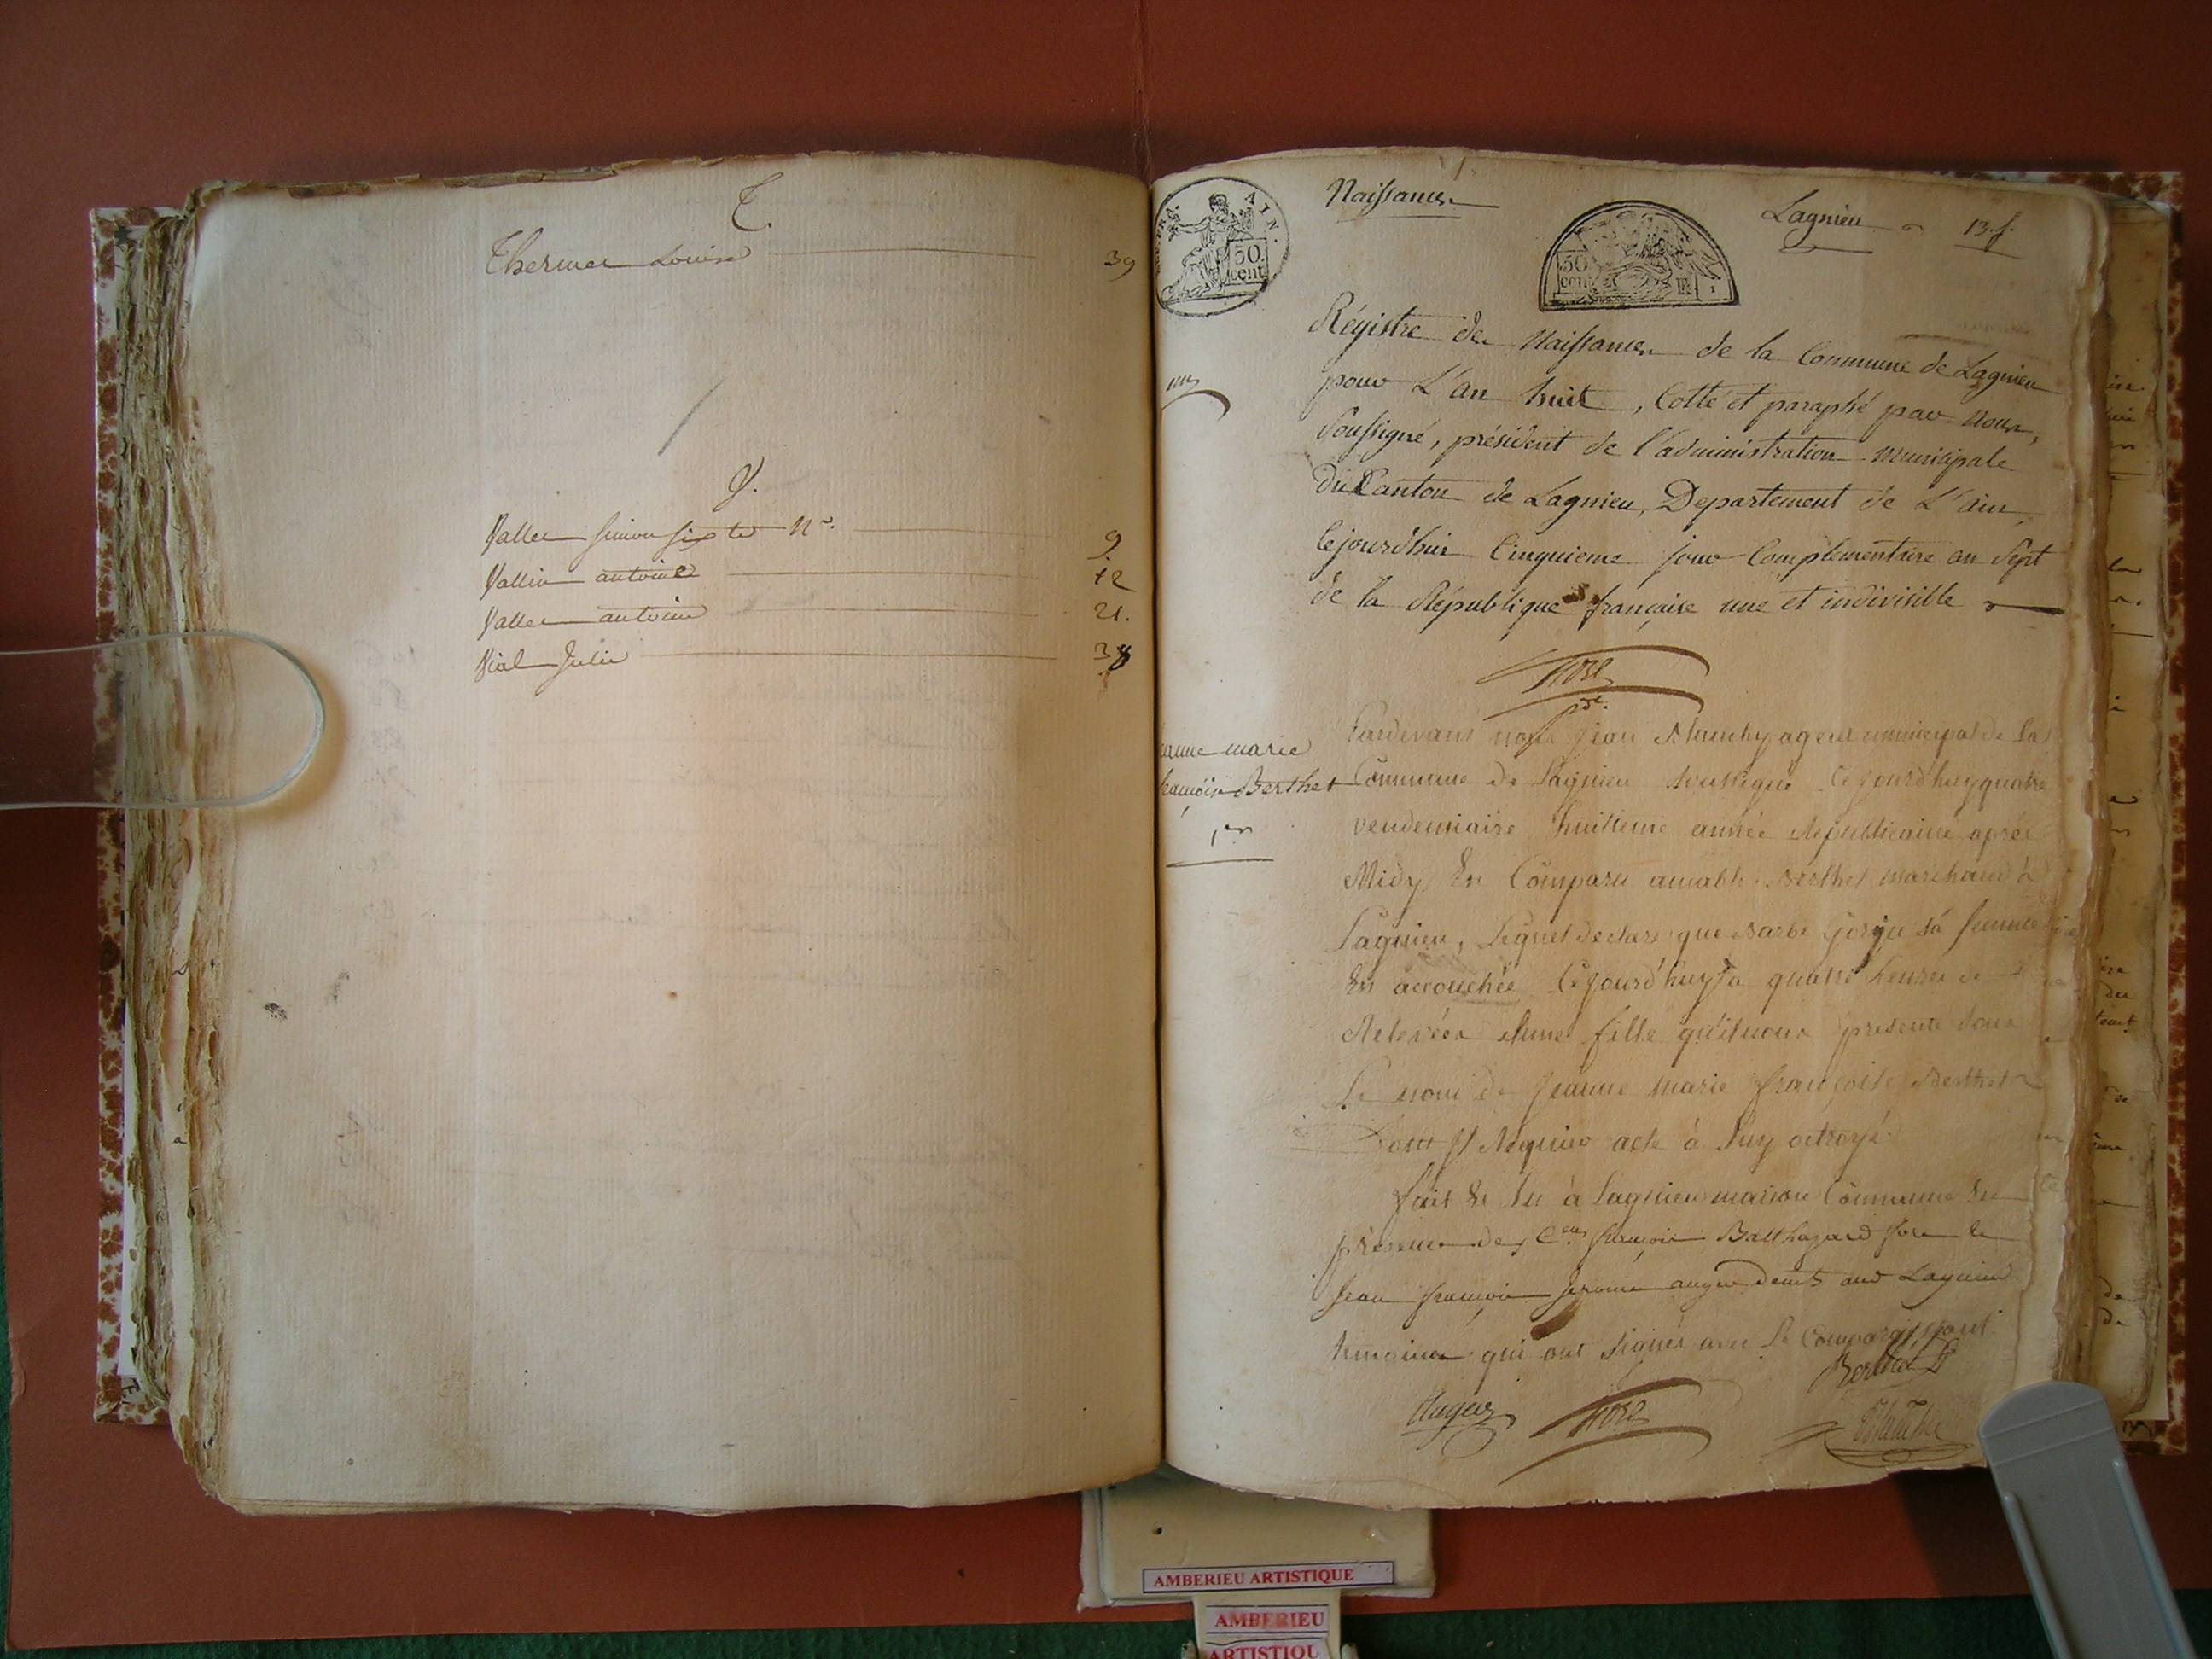 T.
Thermer Louise 39
V.
Vallee simon sixte N.e 9
Vallin antoine 12
Vallee antoine 21.
Vial Julie 38
AIN.
50. cent
Naissances
50 cent
Lagnieu 13. f.
Régistre des Naissances de la Commune de Lagnieu
pour L'an huit, Cotté et paraphé par nous,
Soussigné, président de l'administration municipale
du Canton de Lagnieu, Departement de L'ain,
Cejourd'hui Cinquieme jour Complementaire an Sept
de la République française une et indivisible
pdt.
Jeanne marie
françoise Berthet
1er
Pardevant nous Jean agent municipal de la
Commune de Lagnieu soussigné Cejourd'huy quatre
vendemiaire huitieme année Republicaine après
Midy Est Comparu amable Berthet marchand à
Lagnieu, Lequel declare que Barbe sa femme
Est accouchée Cejourd'huy à quatre heures de
Relevées d'une fille qu'il nous presente sous
Le nom de Jeanne Marie françoise Berthet
Dont Il Requier acte à Luy octroyé
fait & lu à Lagnieu maison Commune En
présence des C.ens françois Balthazard fore &
Jean françois Jerome auger demts aud Lagnieu
temoins qui ont signés avec Le Comparoissant
Berthet
Auger
AMBERIEU ARTISTIQUE
AMBERIEU
ARTISTIQU